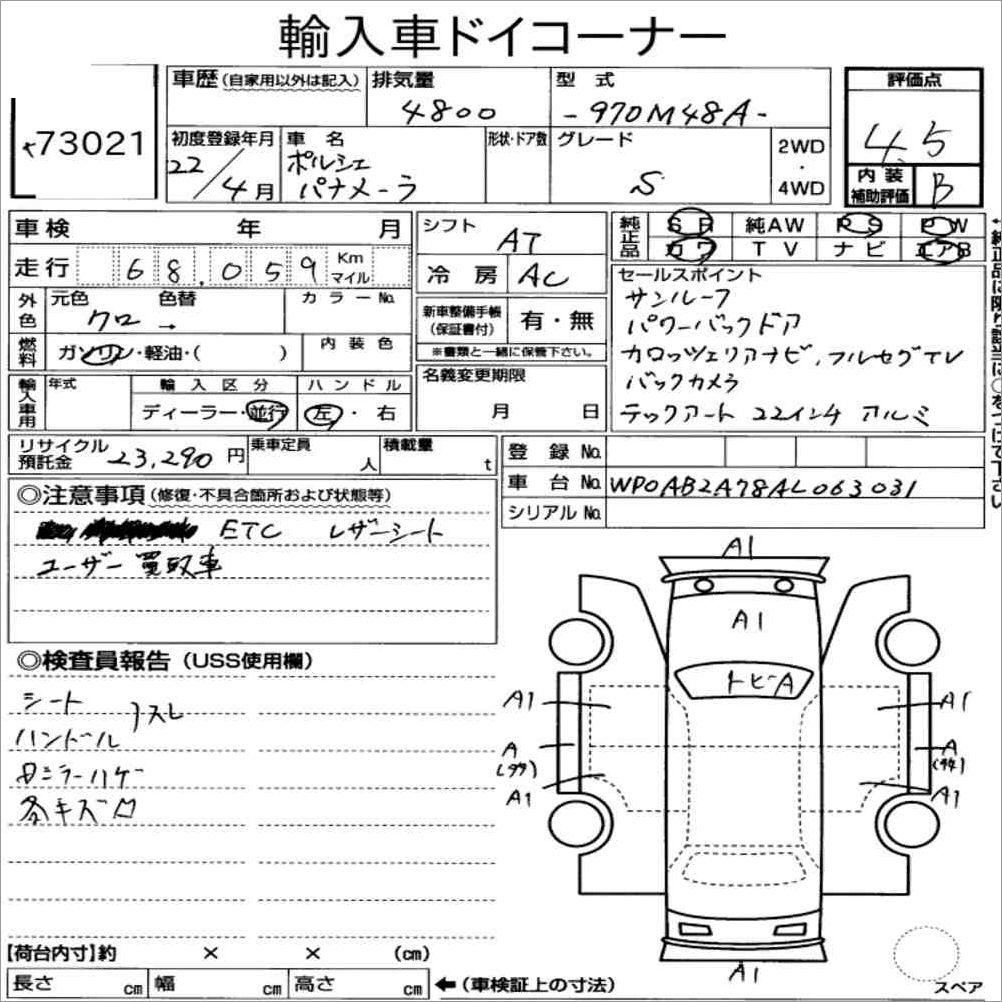 輸入車ドイコーナー
73021
車歴(自家用以外は記入) 排気量 型式 評価点
4800 -970M48A- 4.5
初度登録年月 車名 形状・ドア数 グレード 2WD・4WD
22/4月 ポルシェ パナメーラ S
内装補助評価 B
車検 年 月 シフト AT
走行 68,059 Km マイル 冷房 AC
純正品 SR 純AW PS PW
カワ TV ナビ エアB
外色 元色 色替 カラーNo.
クロ →
燃料 ガソリン・軽油・( ) 内装色
新車整備手帳(保証書付) 有・無
※書類と一緒に保管下さい。
セールスポイント
サンルーフ
パワーバックドア
カロッツェリアナビ,フルセグTV
バックカメラ
テックアート 22インチ アルミ
輸入車用 年式 輸入区分 ハンドル
ディーラー・並行 左・右
名義変更期限
月 日
リサイクル預託金 23,290円 乗車定員 人 積載量 t
登録No.
車台No. WP0AB2A78AL063031
シリアルNo.
◎注意事項(修復・不具合箇所および状態等)
ETC レザーシート
ユーザー買取車
◎検査員報告(USS使用欄)
シート
ハンドル
スレ
ミラーハゲ
各キズ凹
A1
A1
トビA
A1 A1
A A
A1 A1
A1
【荷台内寸】約 × × (cm)
長さ cm 幅 cm 高さ cm ←(車検証上の寸法)
スペア